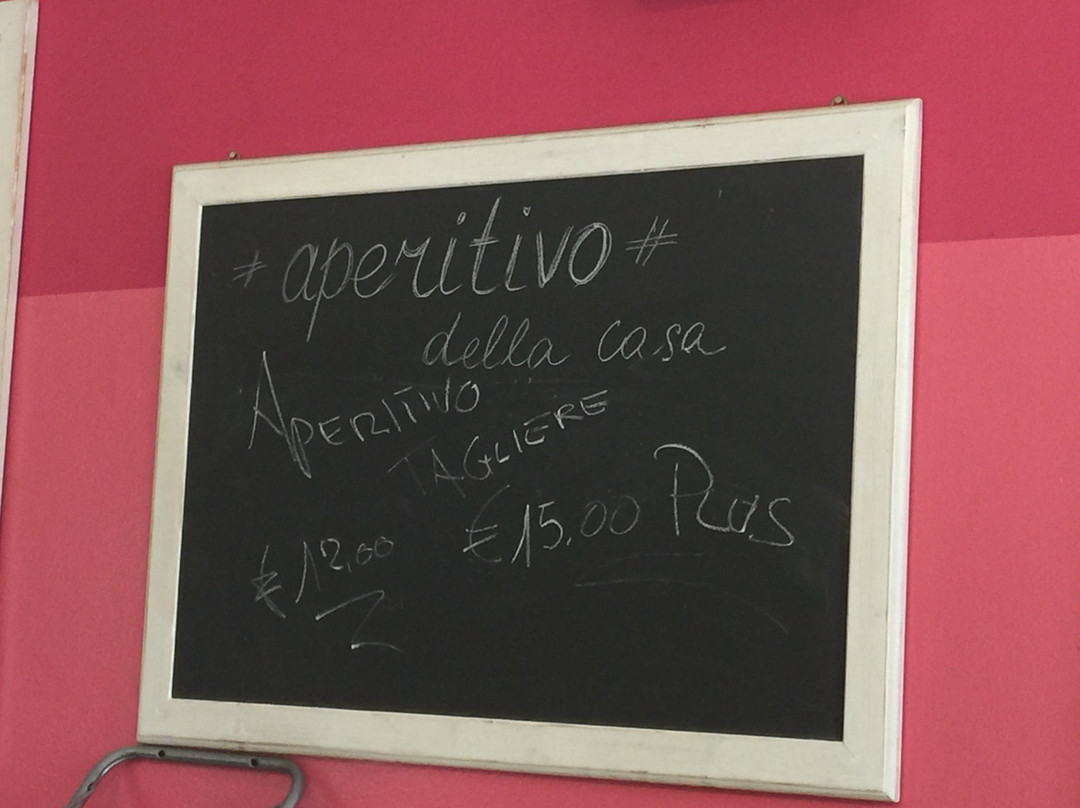 # aperitivo #
della casa
APERITIVO
TAGLIERE
€ 12,00
€ 15,00 PLUS